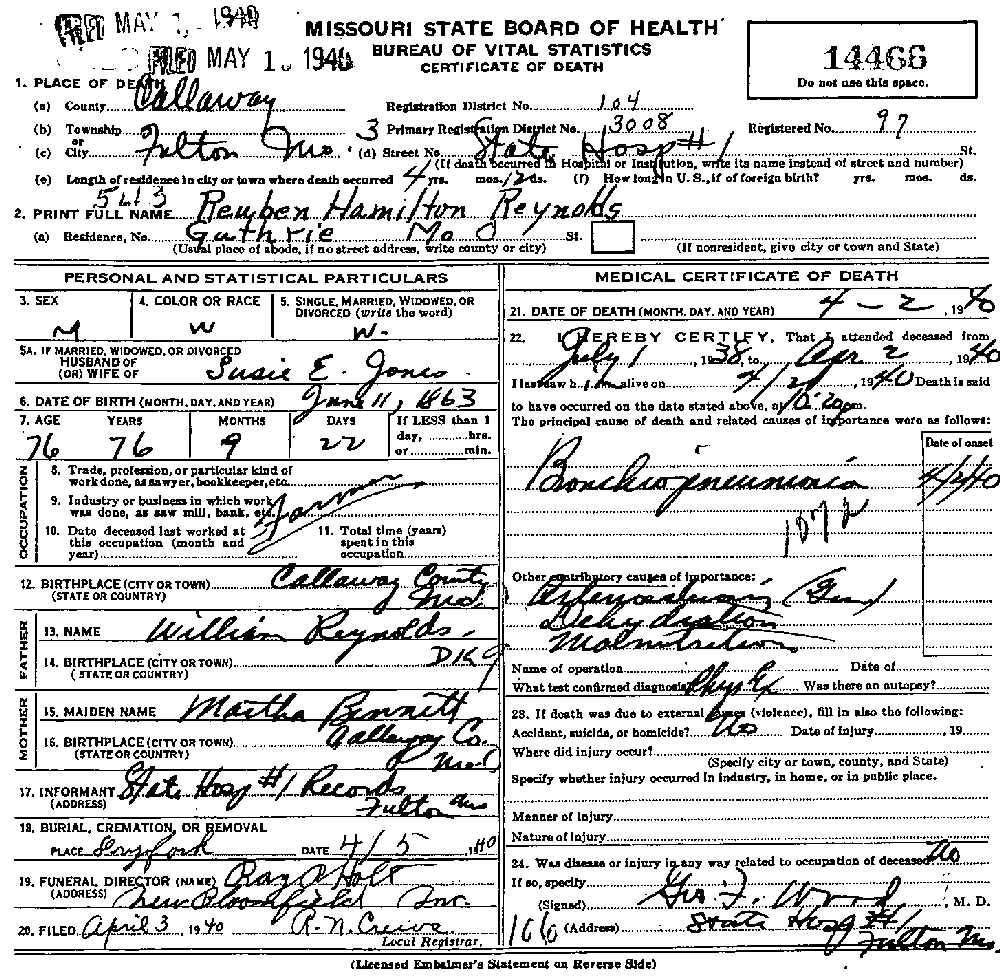 FILED MAY 1, 1940
FILED MAY 1, 1940
MISSOURI STATE BOARD OF HEALTH
BUREAU OF VITAL STATISTICS
CERTIFICATE OF DEATH
14466
Do not use this space.
1. PLACE OF DEATH
(a) County Callaway Registration District No. 104
(b) Township 3 Primary Registration District No. 3008 Registered No. 97
or
(c) City Fulton Mo. (d) Street No. State Hosp #1 St.
(If death occurred in Hospital or Institution, write its name instead of street and number)
(e) Length of residence in city or town where death occurred 4 yrs. mos. 12 ds. (f) How long in U. S., if of foreign birth? yrs. mos. ds.
2. PRINT FULL NAME Reuben Hamilton Reynolds
(a) Residence, No. Guthrie Mo St.
(Usual place of abode, if no street address, write county or city) (If nonresident, give city or town and State)
PERSONAL AND STATISTICAL PARTICULARS
3. SEX M
4. COLOR OR RACE W
5. SINGLE, MARRIED, WIDOWED, OR DIVORCED (write the word) W.
5A. IF MARRIED, WIDOWED, OR DIVORCED
HUSBAND OF
(OR) WIFE OF Susie E. Jones
6. DATE OF BIRTH (MONTH, DAY, AND YEAR) June 11, 1863
7. AGE YEARS MONTHS DAYS If LESS than 1
76 76 9 22 day, hrs.
or min.
OCCUPATION
8. Trade, profession, or particular kind of
work done, as sawyer, bookkeeper, etc.
9. Industry or business in which work
was done, as saw mill, bank, etc. Farmer
10. Date deceased last worked at
this occupation (month and
year)
11. Total time (years)
spent in this
occupation
12. BIRTHPLACE (CITY OR TOWN) Callaway County
(STATE OR COUNTRY) Mo.
FATHER
13. NAME William Reynolds
14. BIRTHPLACE (CITY OR TOWN) DK
(STATE OR COUNTRY)
MOTHER
15. MAIDEN NAME Martha Bennett
16. BIRTHPLACE (CITY OR TOWN) Callaway Co.
(STATE OR COUNTRY) Mo
17. INFORMANT State Hosp #1 Records
(ADDRESS) Fulton Mo
18. BURIAL, CREMATION, OR REMOVAL
PLACE DATE 4/5 1940
19. FUNERAL DIRECTOR (NAME) Ray Holt
(ADDRESS) New Bloomfield Mo.
20. FILED April 3 1940 R. N. Crews
Local Registrar.
MEDICAL CERTIFICATE OF DEATH
21. DATE OF DEATH (MONTH, DAY, AND YEAR) 4 - 2, 1940
22. I HEREBY CERTIFY, That I attended deceased from
July 1, 1938, to Apr 2, 1940
I last saw him alive on 4/2, 1940 Death is said
to have occurred on the date stated above, at 10:20 p.m.
The principal cause of death and related causes of importance were as follows:
Date of onset
Bronchiopneumonia 4/2/40
107 2
Other contributory causes of importance:
Arteriosclerosis (Gen)
Dehydration
Malnutrition
Name of operation Date of
What test confirmed diagnosis? Phys Ex Was there an autopsy?
23. If death was due to external causes (violence), fill in also the following:
Accident, suicide, or homicide? No Date of injury, 19
Where did injury occur?
(Specify city or town, county, and State)
Specify whether injury occurred in industry, in home, or in public place.
Manner of injury
Nature of injury
24. Was disease or injury in any way related to occupation of deceased? No
If so, specify
(Signed) Geo. F. Wood, M. D.
166 (Address) State Hosp #1
Fulton Mo.
(Licensed Embalmer's Statement on Reverse Side)